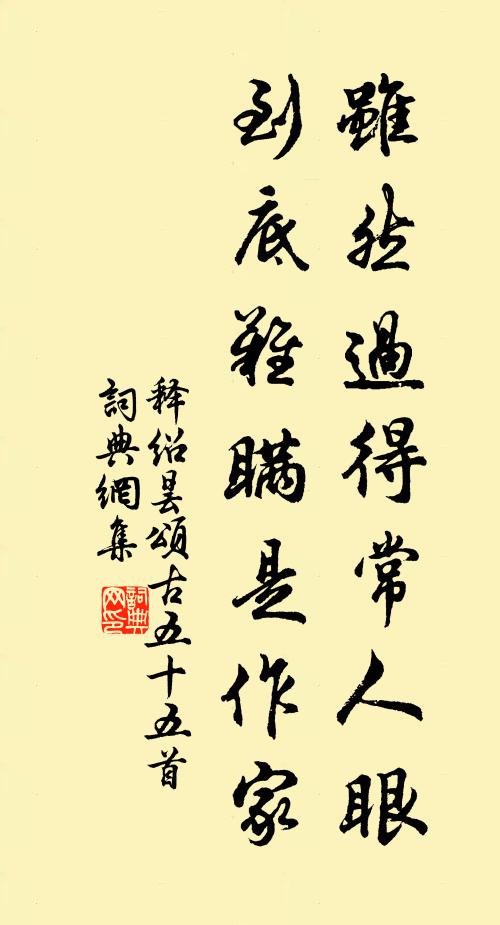 雖然過得常人眼
到底難瞞是作家
释紹曇頌古五十五首
詞典網集
詞典
网印